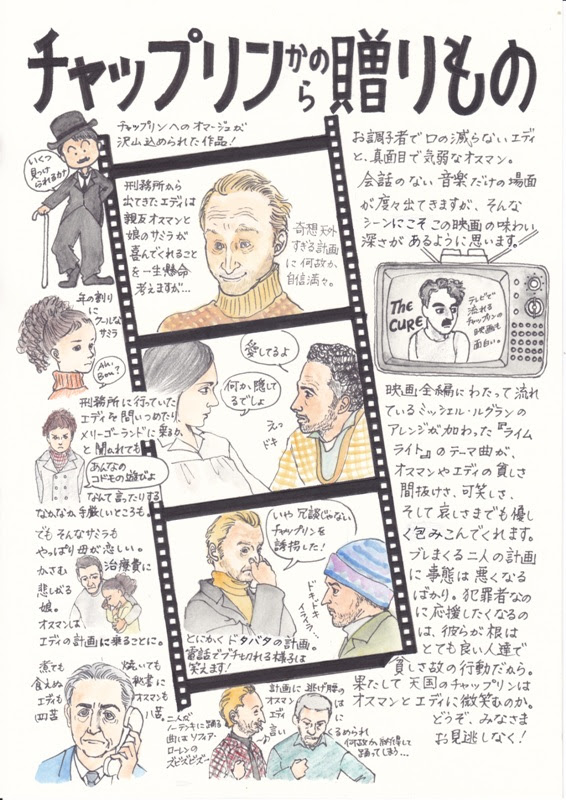 チャップリンからの贈りもの
チャップリンへのオマージュが
沢山込められた作品!
いくつ
見つけ
られるか?
刑務所から
出てきたエディは
親友オスマンと
娘のサミラが
喜んでくれること
を一生懸命
考えますが…
奇想天外
すぎる計画
に何故か、
自信満々。
お調子者で口の減らないエディ
と、真面目で気弱なオスマン。
会話のない音楽だけの場面
が度々出てきますが、そんな
シーンにこそこの映画の味わい
深さがあるように思います。
THE
CURE
テレビで
流れる
チャップリンの
映画も
面白い。
年の割り
にクールな
サミラ
Ah.
Bon?
刑務所に行っていた
エディを問いつめたり、
メリーゴーランドに乗るか
と聞かれても
あんなの
コドモの遊びでよ
なんて言ったりする
なかなか手厳しいところも。
愛してるよ
何か、隠して
るでしょ
えっ
ドキ
でもそんなサミラも
やっぱり母が恋しい。
かさむ
治療費に
悲しがる
娘。
オスマンは
エディの計画に乗ることに。
いや冗談じゃない
チャップリンを
誘拐した!
ドキドキ
イライラ…
とにかくドタバタの計画。
電話でブチ切れる様子は
笑えます!
映画全編にわたって流れ
ているミッシェル・ルグランの
アレンジが加わった『ライム
ライト』のテーマ曲が、
オスマンやエディの貧しさ
間抜けさ、可笑しさ、
そして哀しさまでも優し
く包みこんでくれます。
ブレまくる二人の計画
に事態は悪くなる
ばかり。犯罪者なの
に応援したくなるの
は、彼らが根は
とても良い人達で
貧しさ故の行動だから。
果たして天国のチャップリンは
オスマンとエディに微笑むのか。
どうぞ、みなさま
お見逃しなく!
煮ても
焼いても
食えぬ
秘書に
エディも
オスマンも
四苦
八苦。
二人が
ノーテンキに踊る
曲はソフィア・
ローレンの
ズビズビズ〜
計画に
逃げ腰の
オスマン
エディ
に
言い
くるめられ
何故か納得して
踊ってしまう…